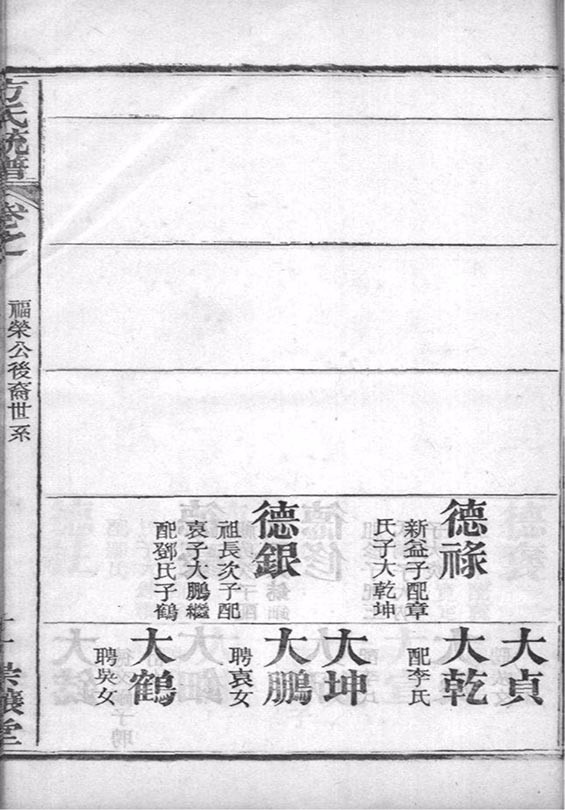 德祿
新益子配章
氏子大乾坤
德銀
祖長次子配
袁子大鵬繼
配鄧氏子鶴
大貞
大乾
配李氏
大坤
大鵬
聘袁女
大鶴
聘吳女
方氏統譜
卷之
福榮公後裔世系